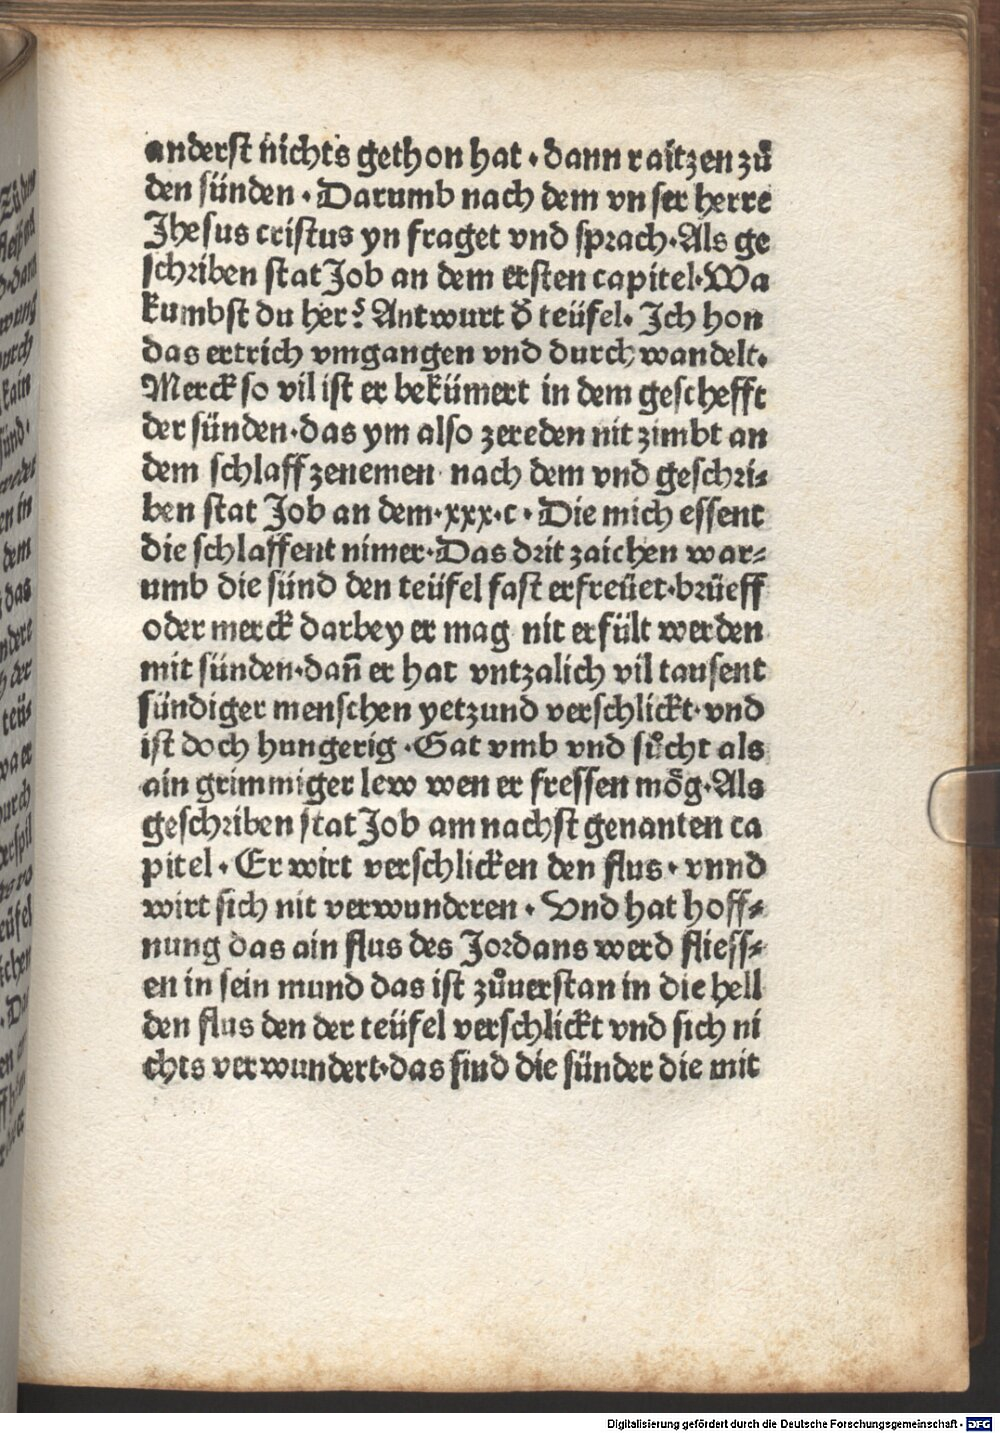 anderst nichts gethon hat · dann raitzen zů
den sünden · Darumb nach dem vnser herre
Jhesus cristus yn fraget vnd sprach · Als ge
schriben stat Job an dem ersten capitel · Wa
kumbst du her? Antwurt d̕ teüfel · Ich hon
das ertrich vmgangen vnd durch wandelt ·
Merck so vil ist er bekümert in dem geschefft
der sünden · das ym also zereden nit zimbt an
dem schlaff zenemen nach dem vnd geschri⸗
ben stat Job an dem · xxx · c · Die mich essent
die schlaffent nimer · Das drit zaichen war⸗
umb die sünd den teüfel fast erfreüet · brüeff
oder merck darbey er mag nit erfült werden
mit sünden · dañ er hat vntzalich vil tausent
sündiger menschen yetzund verschlickt · vnd
ist doch hungerig · Gat vmb vnd sůcht als
ain grimmiger lew wen er fressen mög · Als
geschriben stat Job am nachst genanten ca
pitel · Er wirt verschlicken den flus · vnnd
wirt sich nit verwunderen · Vnd hat hoff⸗
nung das ain flus des Jordans werd fliess⸗
en in sein mund das ist zůuerstan in die hell
den flus den der teüfel verschlickt vnd sich ni
chts verwundert · das sind die sünder die mit
Digitalisierung gefördert durch die Deutsche Forschungsgemeinschaft - DFG